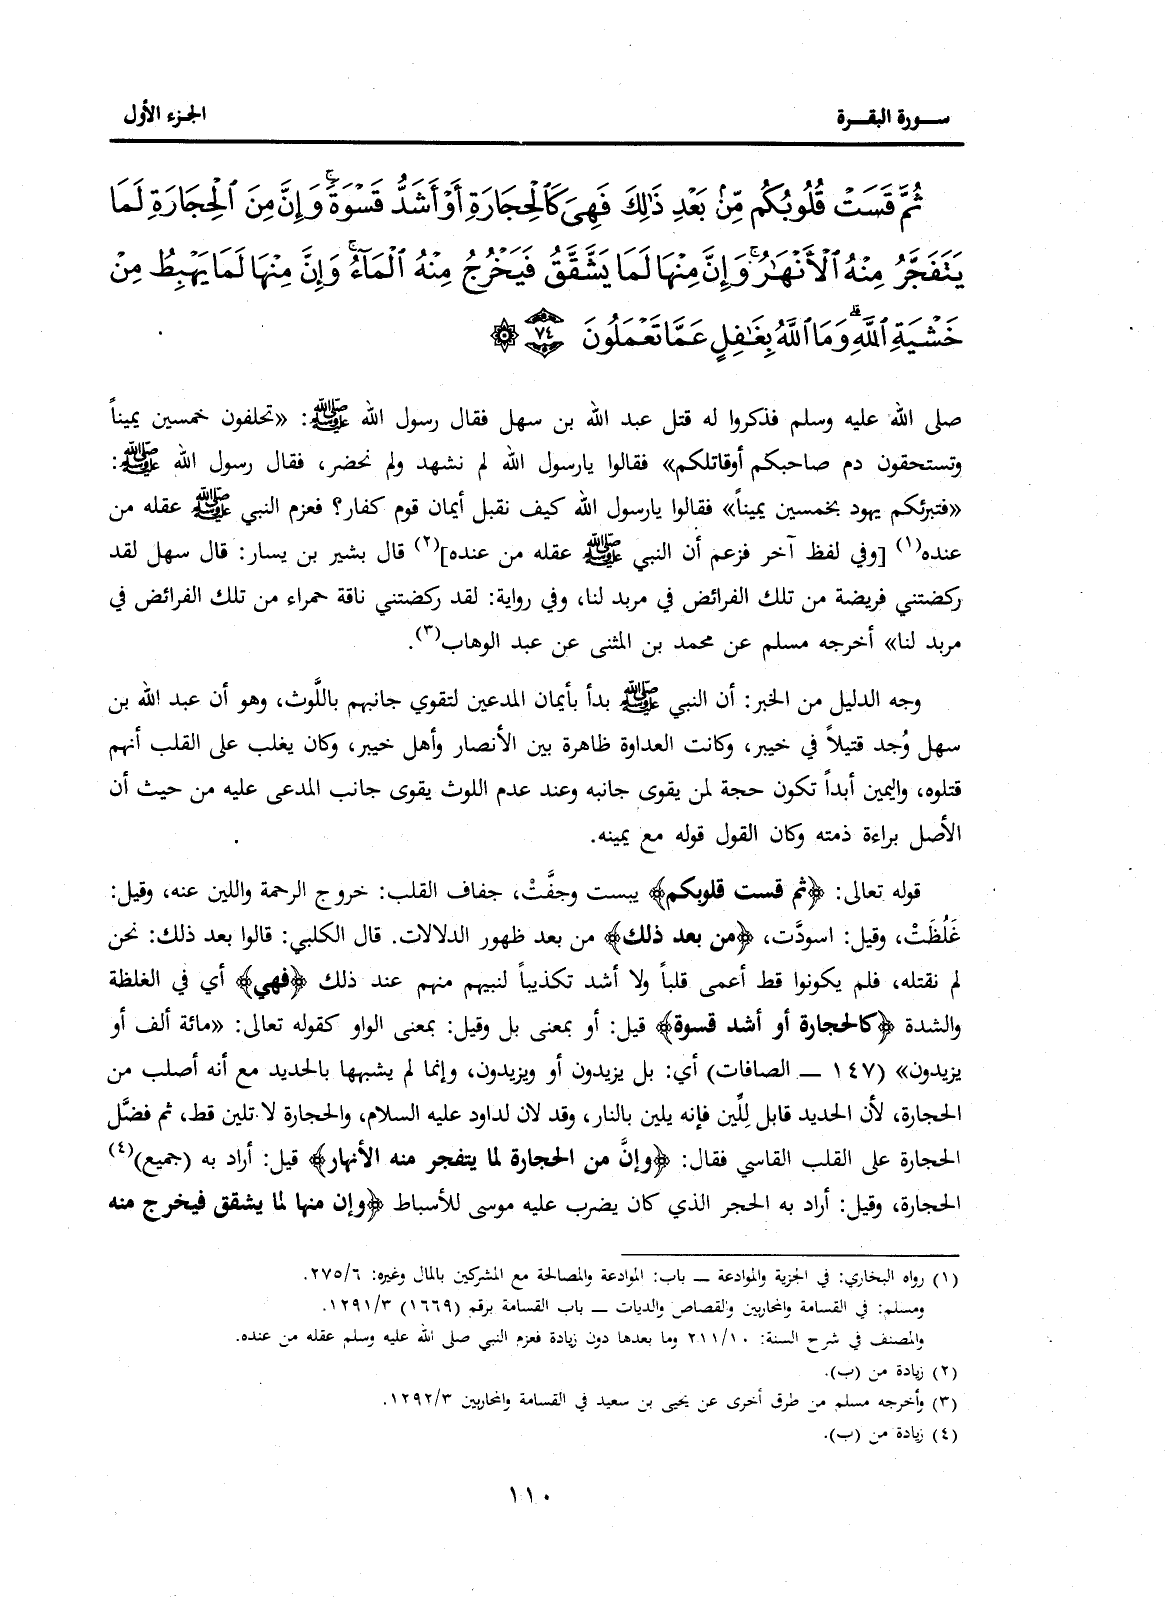 سـورة البقـرة
الجزء الأول
ثُمَّ قَسَتْ قُلُوبُكُم مِّنۢ بَعْدِ ذَٰلِكَ فَهِىَ كَٱلْحِجَارَةِ أَوْ أَشَدُّ قَسْوَةً ۚ وَإِنَّ مِنَ ٱلْحِجَارَةِ لَمَا
يَتَفَجَّرُ مِنْهُ ٱلْأَنْهَـٰرُ ۚ وَإِنَّ مِنْهَا لَمَا يَشَّقَّقُ فَيَخْرُجُ مِنْهُ ٱلْمَآءُ ۚ وَإِنَّ مِنْهَا لَمَا يَهْبِطُ مِنْ
خَشْيَةِ ٱللَّهِ ۗ وَمَا ٱللَّهُ بِغَـٰفِلٍ عَمَّا تَعْمَلُونَ ٧٤ ۞
صلى الله عليه وسلم فذكروا له قتل عبد الله بن سهل فقال رسول الله ﷺ: «تحلفون خمسين يميناً
وتستحقون دم صاحبكم أوقاتلكم» فقالوا يارسول الله لم نشهد ولم نحضر، فقال رسول الله ﷺ:
«فتبرئكم يهود بخمسين يميناً» فقالوا يارسول الله كيف نقبل أيمان قوم كفار؟ فعزم النبي ﷺ عقله من
عنده(١) [وفي لفظ آخر فزعم أن النبي ﷺ عقله من عنده](٢) قال بشير بن يسار: قال سهل لقد
ركضتني فريضة من تلك الفرائض في مربد لنا، وفي رواية: لقد ركضتني ناقة حمراء من تلك الفرائض في
مربد لنا» أخرجه مسلم عن محمد بن المثنى عن عبد الوهاب(٣).
وجه الدليل من الخبر: أن النبي ﷺ بدأ بأيمان المدعين لتقوي جانبهم باللَّوث، وهو أن عبد الله بن
سهل وُجد قتيلاً في خيبر، وكانت العداوة ظاهرة بين الأنصار وأهل خيبر، وكان يغلب على القلب أنهم
قتلوه، واليمين أبداً تكون حجة لمن يقوى جانبه وعند عدم اللوث يقوى جانب المدعى عليه من حيث أن
الأصل براءة ذمته وكان القول قوله مع يمينه.
قوله تعالى: ﴿ثم قست قلوبكم﴾ يبست وجفَّتْ، جفاف القلب: خروج الرحمة واللين عنه، وقيل:
غَلُظَتْ، وقيل: اسودَّت، ﴿من بعد ذلك﴾ من بعد ظهور الدلالات. قال الكلبي: قالوا بعد ذلك: نحن
لم نقتله، فلم يكونوا قط أعمى قلباً ولا أشد تكذيباً لنبيهم منهم عند ذلك ﴿فهي﴾ أي في الغلظة
والشدة ﴿كالحجارة أو أشد قسوة﴾ قيل: أو بمعنى بل وقيل: بمعنى الواو كقوله تعالى: «مائة ألف أو
يزيدون» (١٤٧ ــ الصافات) أي: بل يزيدون أو ويزيدون، وإنما لم يشبهها بالحديد مع أنه أصلب من
الحجارة، لأن الحديد قابل لِلِّين فإنه يلين بالنار، وقد لان لداود عليه السلام، والحجارة لا تلين قط، ثم فضَّل
الحجارة على القلب القاسي فقال: ﴿وإنَّ من الحجارة لما يتفجر منه الأنهار﴾ قيل: أراد به (جميع)(٤)
الحجارة، وقيل: أراد به الحجر الذي كان يضرب عليه موسى للأسباط ﴿وإن منها لما يشقق فيخرج منه
(١) رواه البخاري: في الجزية والموادعة ــ باب: الموادعة والمصالحة مع المشركين بالمال وغيره: ٢٧٥/٦.
ومسلم: في القسامة والمحاربين والقصاص والديات ــ باب القسامة برقم (١٦٦٩) ١٢٩١/٣.
والمصنف في شرح السنة: ٢١١/١٠ وما بعدها دون زيادة فعزم النبي صلى الله عليه وسلم عقله من عنده.
(٢) زيادة من (ب).
(٣) وأخرجه مسلم من طرق أخرى عن يحيى بن سعيد في القسامة والمحاربين ١٢٩٢/٣.
(٤) زيادة من (ب).
١١٠